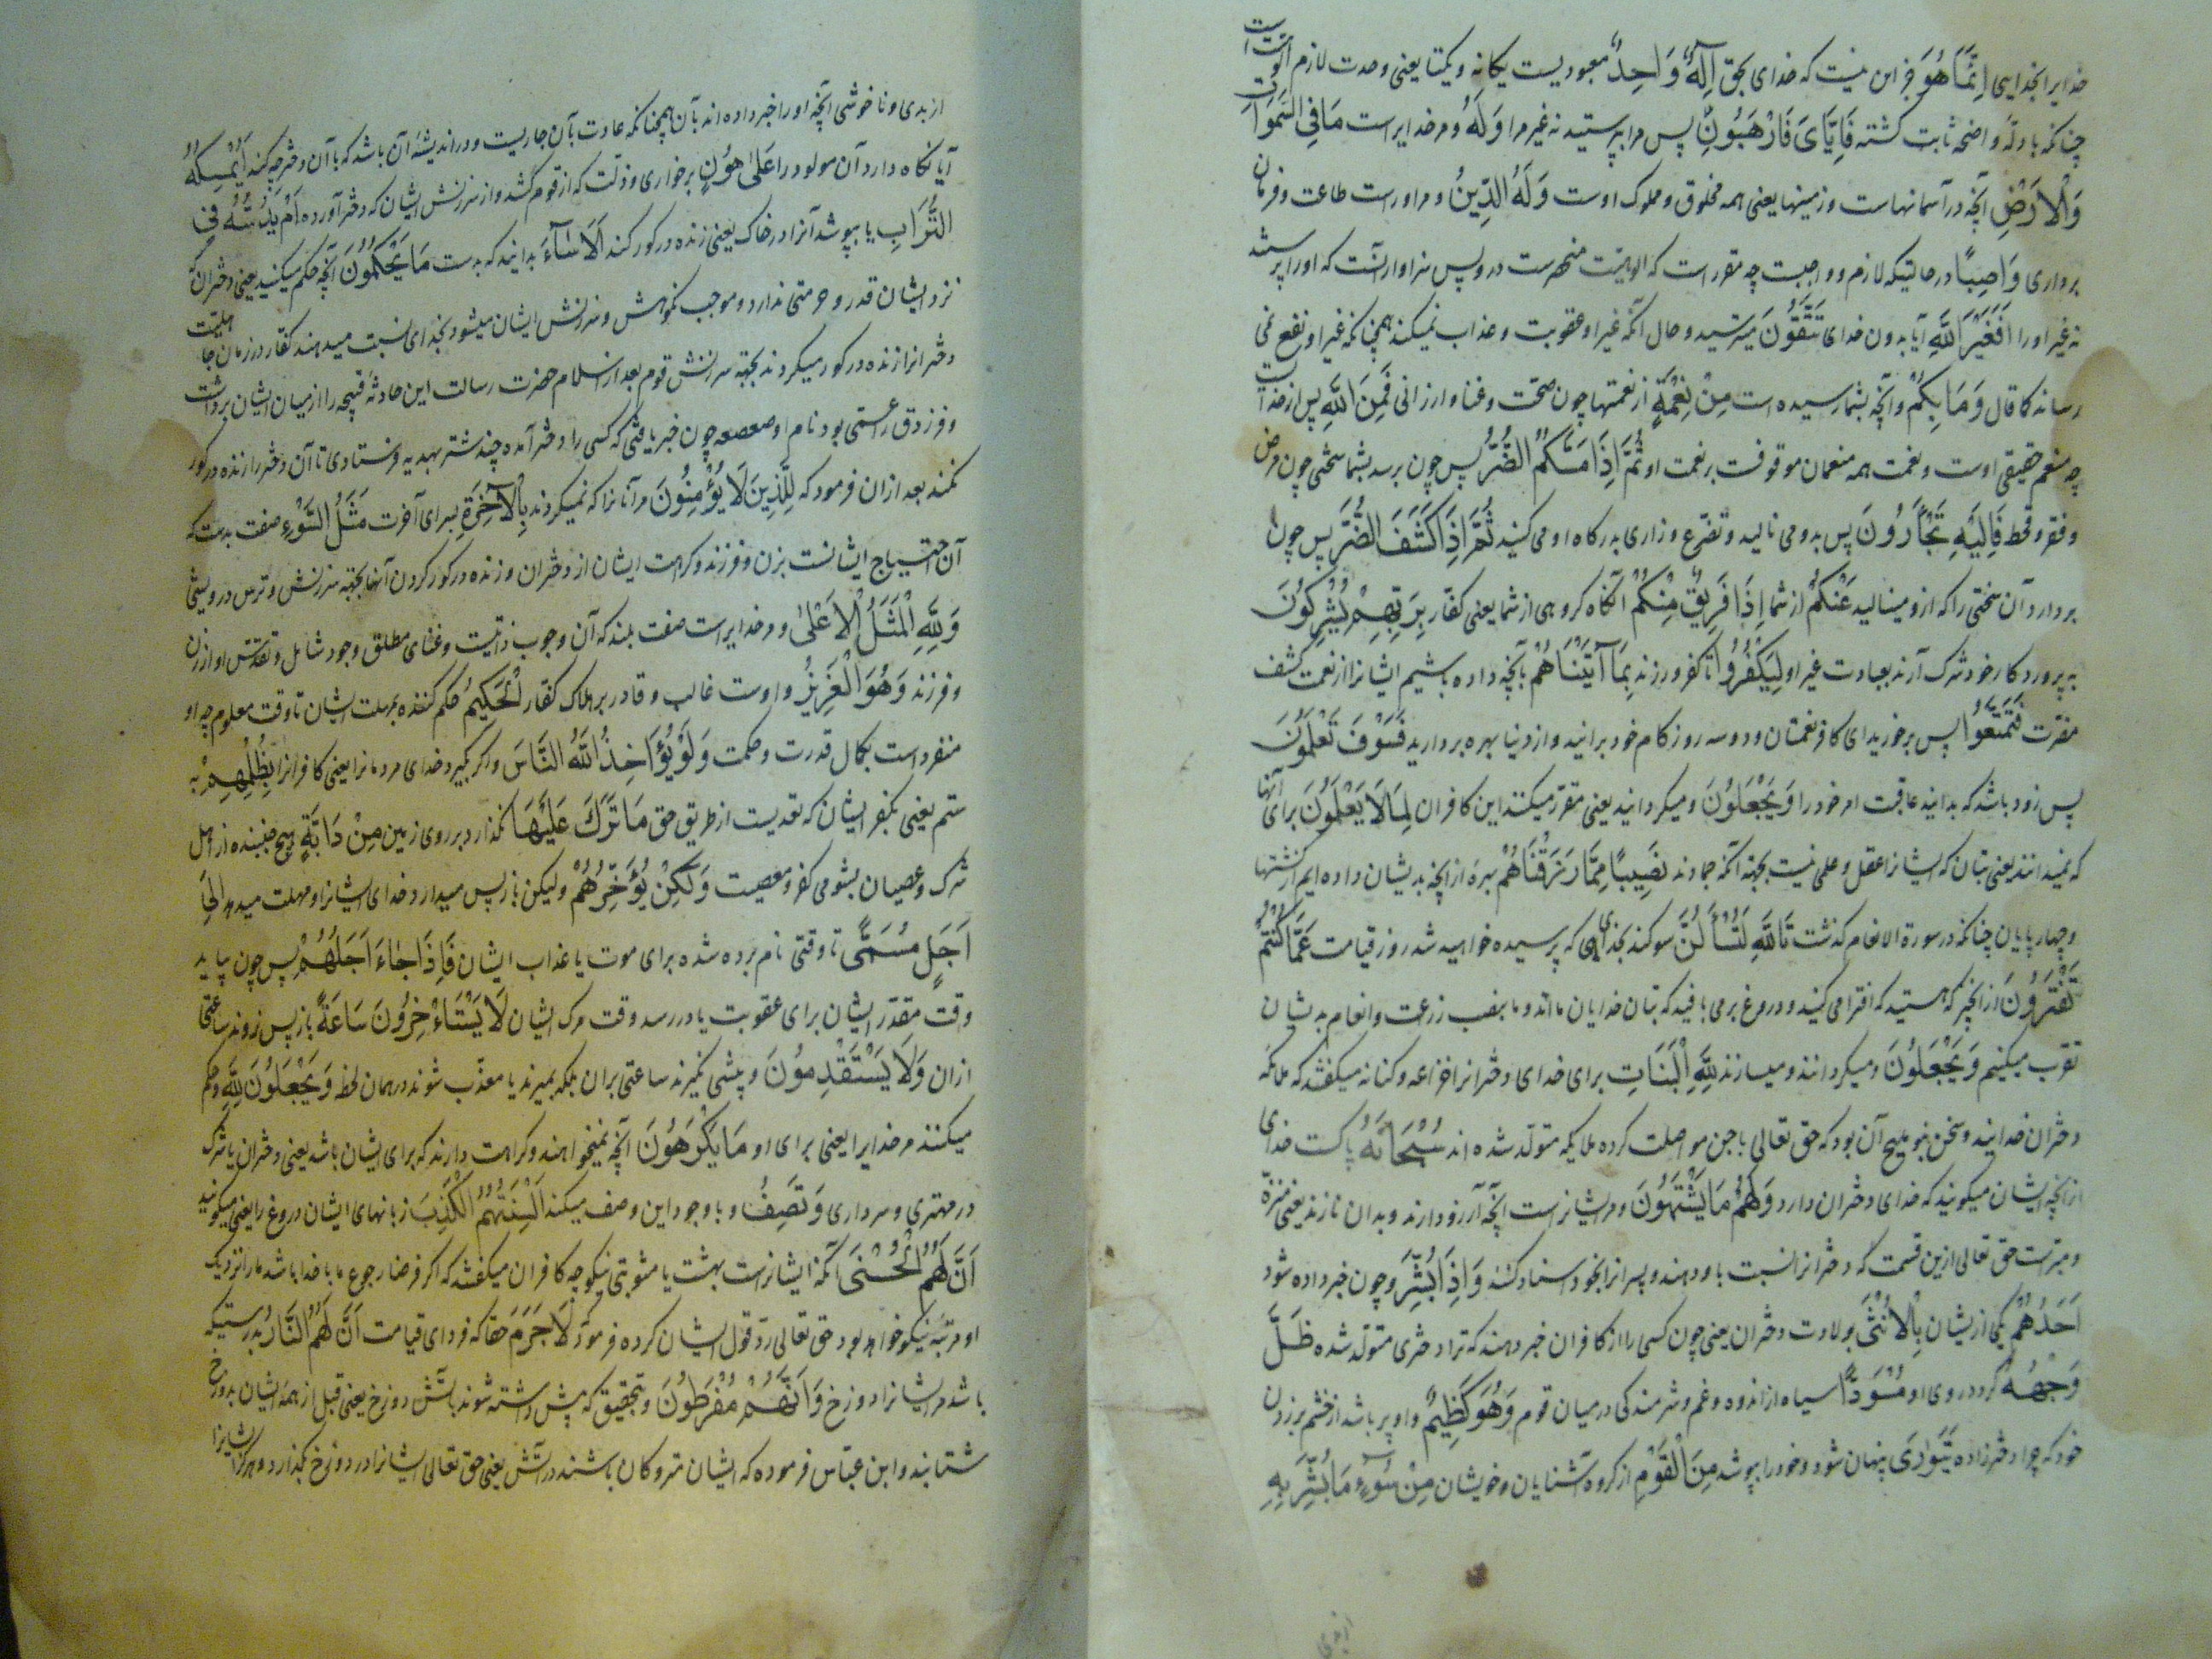 خدایرا بخدایی اِنَّمَا هُوَ جز این نیست که خدای بحق اِلٰهٌ وَاحِدٌ معبودیست یکانه و یکتا یعنی وحدت لازم الوهیت است
چنانکه بادلهٔ واضحه ثابت کشته فَاِیَّایَ فَارْهَبُونِ پس مرا بپرستید نه غیر مرا وَلَهُ و مر خدایراست مَا فِی السَّمٰوَاتِ
وَالْاَرْضِ آنچه در آسمانهاست و زمینها یعنی همه مخلوق و مملوک اوست وَلَهُ الدِّینُ و مر اوراست طاعت و فرمان
برداری وَاصِبًا در حالتیکه لازم و واجبست چه مقرر است که الوهیت منحصرست درو پس سزاوار آنست که اورا پرستند
نه غیر اورا اَفَغَیْرَ اللّٰهِ آیا بدون خدای تَتَّقُونَ میترسید و حال آنکه غیر او عقوبت و عذاب نمیکند همچنانکه غیر او نفع نمی
رساند کما قال وَمَا بِکُمْ و آنچه بشما رسیده است مِنْ نِعْمَةٍ از نعمتها چون صحت و غنا و ارزانی فَمِنَ اللّٰهِ پس از خداست
چه منعم حقیقی اوست و نعمت همه منعمان موقوفست بر نعمت او ثُمَّ اِذَا مَسَّکُمُ الضُّرُّ پس چون برسد بشما سختی چون مرض
و فقر و قحط فَاِلَیْهِ تَجْاَرُونَ پس بدو می نالید و تضرع و زاری بدرکاه او می کنید ثُمَّ اِذَا کَشَفَ الضُّرَّ پس چون
بردارد آن سختی را که ازو مینالید عَنْکُمْ از شما اِذَا فَرِیقٌ مِنْکُمْ آنکاه کروهی از شما یعنی کفار بِرَبِّهِمْ یُشْرِکُونَ
به پروردکار خود شرک آرند بعبادت غیر او لِیَکْفُرُوا تا کفر ورزند بِمَا آتَیْنَاهُمْ بآنچه داده باشیم ایشانرا از نعمت کشف
مضرت فَتَمَتَّعُوا پس برخورید ای کافر نعمتان و دو سه روز کام خود برانید و از دنیا بهره بردارید فَسَوْفَ تَعْلَمُونَ
پس زود باشد که بدانید عاقبت امر خود را وَیَجْعَلُونَ و میکردانند یعنی مقرر میکنند این کافران لِمَا لَا یَعْلَمُونَ برای آنها
که نمیدانند یعنی بتان که ایشانرا عقل و علمی نیست بجهة آنکه جمادند نَصِیبًا مِمَّا رَزَقْنَاهُمْ بهرهٔ از آنچه بدیشان داده ایم از کشتها
و چهارپایان چنانکه در سورة الانعام کذشت تَاللّٰهِ لَتُسْاَلُنَّ سوکند بخدای که پرسیده خواهید شد روز قیامت عَمَّا کُنْتُمْ
تَفْتَرُونَ از آنچیز که هستید که افترا می کنید و دروغ برمی بافید که بتان خدایان مااند و ما بنصب زرعت و انعام بدیشان
تقرب میکنیم وَیَجْعَلُونَ و میکردانند و میسازند لِلّٰهِ الْبَنَاتِ برای خدای دخترانرا خزاعه و کنانه میکفتند که ملائکه
دختران خدایند و سخن بنو ملیح آن بود که حق تعالی با جن مواصلت کرده ملایکه متولد شده اند سُبْحَانَهُ پاکست خدای
از آنچه ایشان میکویند که خدای دختران دارد وَلَهُمْ مَا یَشْتَهُونَ و مر ایشانراست آنچه آرزو دارند و بدان نازند یعنی منزه
و مبراست حق تعالی ازین قسمت که دخترانرا نسبت باو دهند و پسرانرا بخود اسناد کنند وَاِذَا بُشِّرَ و چون خبر داده شود
اَحَدُهُمْ یکی از ایشان بِالْاُنْثٰی بولادت دختران یعنی چون کسی را از کافران خبر دهند که ترا دختری متولد شده ظَلَّ
وَجْهُهُ کردد روی او مُسْوَدًّا سیاه از اندوه و غم و شرمندکی در میان قوم وَهُوَ کَظِیمٌ و او پر باشد از خشم بر زن
خود که چرا دختر زاده یَتَوَارٰی پنهان شود و خود را بپوشد مِنَ الْقَوْمِ از کروه آشنایان و خویشان مِنْ سُوءِ مَا بُشِّرَ بِهِ
از بدی و ناخوشی آنچه اورا خبر داده اند بآن همچنانکه عادت بآن جاریست و در اندیشهٔ آن باشد که با آن دختر چه کند اَیُمْسِکُهُ
آیا نکاه دارد آن مولود را عَلٰی هُونٍ بر خواری و ذلت که از قوم کشد و از سرزنش ایشان که دختر آورده اَمْ یَدُسُّهُ فِی
التُّرَابِ یا بپوشد آنرا در خاک یعنی زنده در کور کند اَلَا سَآءَ بدانید که بدست مَا یَحْکُمُونَ آنچه حکم میکنند یعنی دختران که
نزد ایشان قدر و حرمتی ندارد و موجب نکوهش و سرزنش ایشان میشود بخدای نسبت میدهند کفار در زمان جاهلیت
دخترانرا زنده در کور میکردند بجهة سرزنش قوم بعد از اسلام حضرت رسالت این حادثهٔ قبیحه را از میان ایشان برداشت
و فرزدق را عمی بود نام او صعصعه چون خبر یافتی که کسی را دختر آمده چند شتر بهدیه فرستادی تا آن دختر را زنده در کور
نکنند بعد ازان فرمود که لِلَّذِینَ لَا یُؤْمِنُونَ مر آنانرا که نمیکروند بِالْآخِرَةِ بسرای آخرت مَثَلُ السَّوْءِ صفت بدست که
آن احتیاج ایشانست بزن و فرزند و کراهت ایشان از دختران و زنده در کور کردن آنها بجهة سرزنش و ترس درویشی
وَلِلّٰهِ الْمَثَلُ الْاَعْلٰی و مر خدایراست صفت بلند که آن وجوب ذاتیست و غنای مطلق و جود شامل و تقدس او از زن
و فرزند وَهُوَ الْعَزِیزُ و اوست غالب و قادر بر هلاک کفار الْحَکِیمُ حکم کننده بمهلت ایشان تا وقت معلوم چه او
منفرد است بکمال قدرت و حکمت وَلَوْ یُؤَاخِذُ اللّٰهُ النَّاسَ و اکر بکیرد خدای مردمانرا یعنی کافرانرا بِظُلْمِهِمْ به
ستم یعنی بکفر ایشان که تعدیست از طریق حق مَا تَرَکَ عَلَیْهَا نکذارد بر روی زمین مِنْ دَابَّةٍ هیچ جنبنده از اهل
شرک و عصیان بشومی کفر و معصیت وَلٰکِنْ یُؤَخِّرُهُمْ ولیکن بازپس میدارد خدای ایشانرا و مهلت میدهد اِلٰی
اَجَلٍ مُسَمًّی تا وقتی نام برده شده برای موت یا عذاب ایشان فَاِذَا جَاءَ اَجَلُهُمْ پس چون بیاید
وقت مقدر ایشان برای عقوبت یا در رسد وقت مرک ایشان لَا یَسْتَاْخِرُونَ سَاعَةً بازپس نروند ساعتی
ازان وَلَا یَسْتَقْدِمُونَ و پیشی نکیرند ساعتی بران بلکه بمیرند یا معذب شوند در همان لحظه وَیَجْعَلُونَ لِلّٰهِ و حکم
میکنند مر خدایرا یعنی برای او مَا یَکْرَهُونَ آنچه نمیخواهند و کراهت دارند که برای ایشان باشد یعنی دختران یا شرک
در مهتری و سرداری وَتَصِفُ و باوجود این وصف میکند اَلْسِنَتُهُمُ الْکَذِبَ زبانهای ایشان دروغ را یعنی میکویند
اَنَّ لَهُمُ الْحُسْنٰی آنکه ایشانراست بهشت یا مثوبتی نیکو چه کافران میکفتند که اکر فرضا رجوع ما با خدا باشد مارا نزدیک
او مرتبهٔ نیکو خواهد بود حق تعالی رد قول ایشان کرده فرمود لَا جَرَمَ حقا که فردای قیامت اَنَّ لَهُمُ النَّارَ بدرستیکه
باشد مر ایشانرا دوزخ وَاَنَّهُمْ مُفْرَطُونَ و بتحقیق که پیش داشته شوند بآتش دوزخ یعنی قبل از همه ایشان بدوزخ
شتابند و ابن عباس فرموده که ایشان متروکان باشند در آتش یعنی حق تعالی ایشانرا در دوزخ بکذارد و هرکز ایشانرا